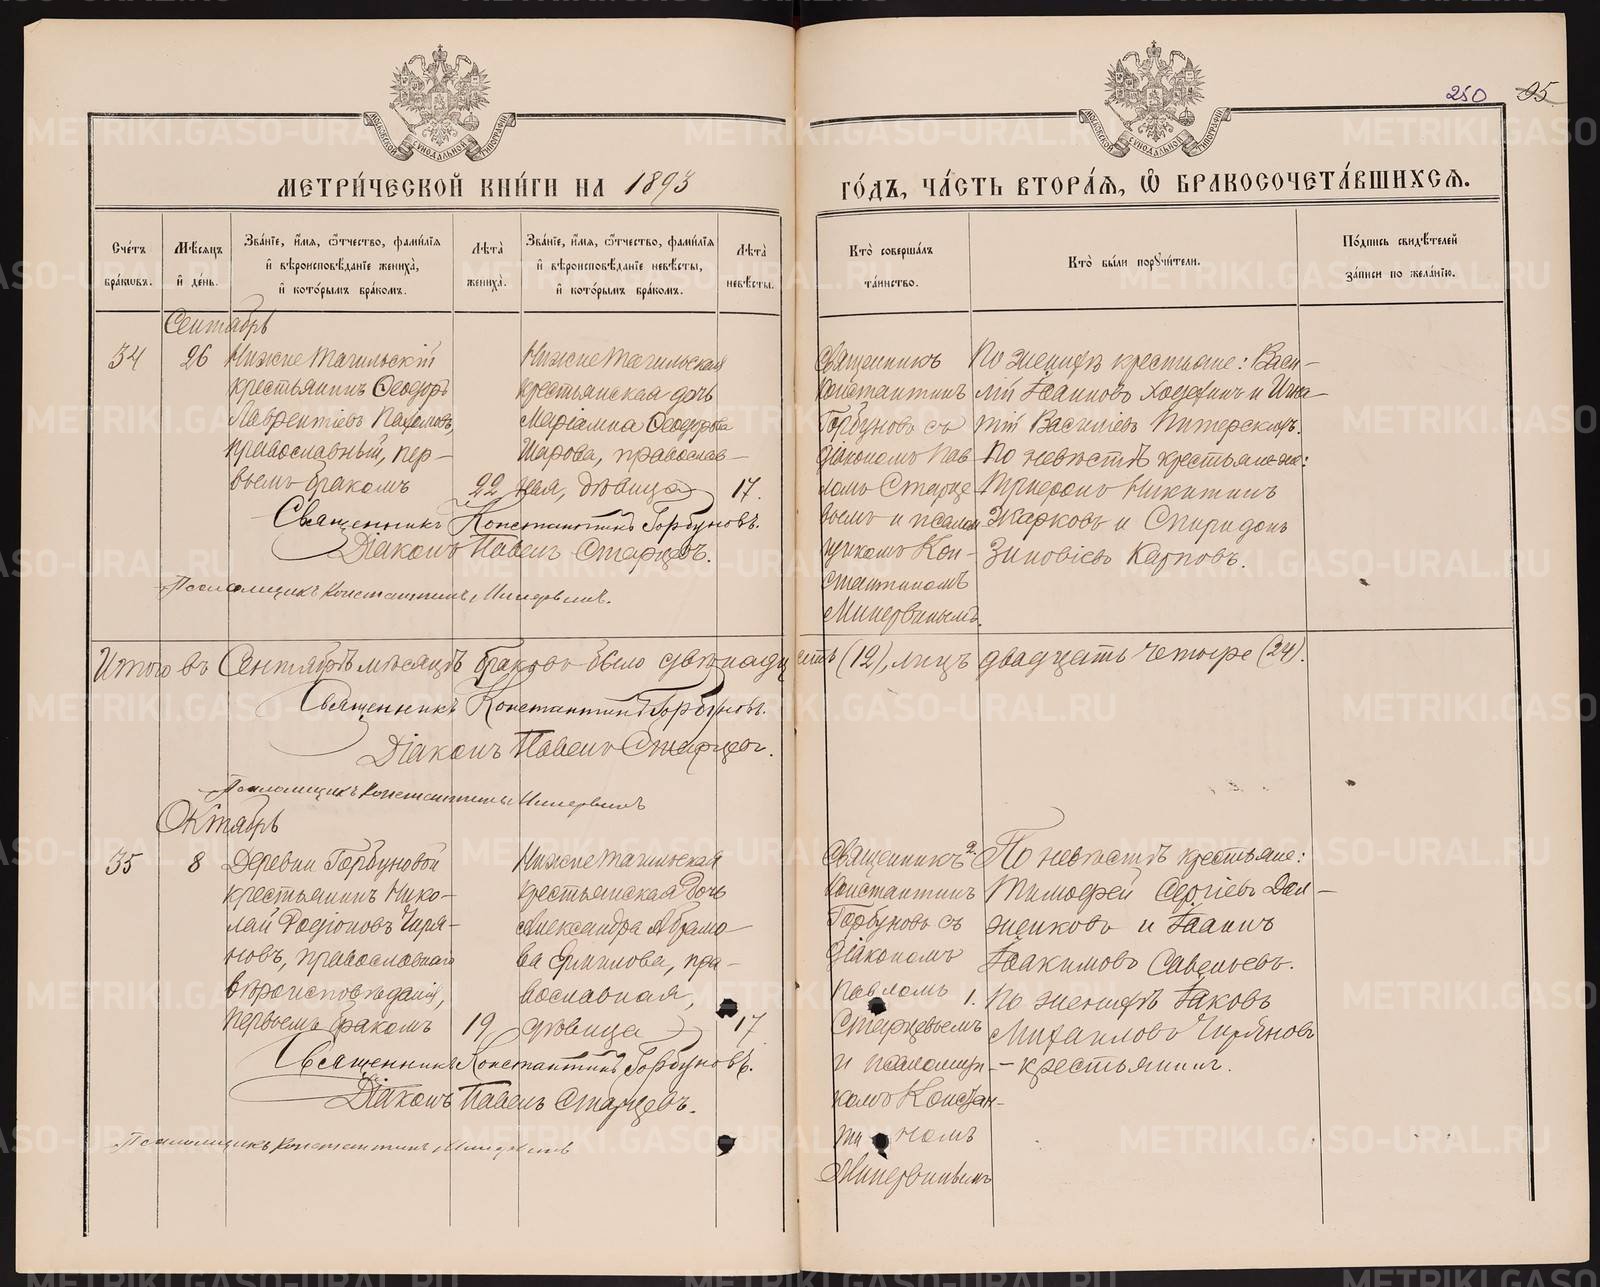 250 95
МОСКОВСКОЙ СѴНОДАЛЬНОЙ ТИПОГРАФІИ
МОСКОВСКОЙ СѴНОДАЛЬНОЙ ТИПОГРАФІИ
МЕТРИ́ЧЕСКОЙ КНИ́ГИ НА 1893
ГО́ДЪ, ЧА́СТЬ ВТОРА́Я, Ѽ БРАКОСОЧЕТА́ВШИХСЯ.
Сче́тъ бра́ковъ.
Мѣ́сяцъ и҆ де́нь.
Зва́нїе, и҆́мя, ѻ҆́тчество, фами́лїя и҆ вѣроисповѣ́данїе жениха̀, и҆ кото́рымъ бра́комъ.
Лѣта̀ жениха̀.
Зва́нїе, и҆́мя, ѻ҆́тчество, фами́лїя и҆ вѣроисповѣ́данїе невѣ́сты, и҆ кото́рымъ бра́комъ.
Лѣта̀ невѣ́сты.
Кто̀ соверша́лъ та́инство.
Кто̀ бы́ли порꙋчи́тели.
По́дпись свидѣ́телей за́писи по жела́нїю.
Сентябрь
34
26
Нижнетагильскій
крестьянинъ Ѳеодоръ
Лаврентіевъ Пахомовъ,
православный, пер-
вымъ бракомъ
22
Нижнетагильская
крестьянская дочь
Маріамна Ѳеодорова
Шарова, православ-
ная, дѣвица
17.
Священникъ
Константинъ
Горбуновъ съ
діакономъ Пав
ломъ Старце
вымъ и псалом
щикомъ Кон-
стантиномъ
Минервинымъ.
По женихѣ крестьяне: Васи-
лій Іоанновъ Ходехинъ и Игна-
тій Василіевъ Питерскихъ.
По невѣстѣ крестьяне же:
Трифонъ Никитинъ
Жарковъ и Спиридонъ
Зиновіевъ Карповъ.
Священникъ Константинъ Горбуновъ.
Діаконъ Павелъ Старцевъ.
Псаломщикъ Константинъ Минервинъ.
Итого въ Сентябрѣ мѣсяцѣ браковъ было двѣнадцать (12), лицъ двадцать четыре (24).
Священникъ Константинъ Горбуновъ.
Діаконъ Павелъ Старцевъ.
Псаломщикъ Константинъ Минервинъ
Октябрь
35
8
Деревни Горбуновой
крестьянинъ Нико-
лай Родіоновъ Чирья-
новъ, православнаго
вѣроисповѣданія,
первымъ бракомъ
19
Нижнетагильская
крестьянская дочь
Александра Абрамо-
ва Ермилова, пра-
вославная,
дѣвица
17
Священникъ
Константинъ
Горбуновъ съ
діакономъ
Павломъ
Старцевымъ
и псаломщи-
комъ Констан-
тиномъ
Минервинымъ
2. По невѣстѣ крестьяне:
Тимофей Сергіевъ Дол-
женковъ и Іоаннъ
Іоакимовъ Савельевъ.
1. По женихѣ Іаковъ
Михаиловъ Чирьяновъ
- крестьянинъ.
Священникъ Константинъ Горбуновъ.
Діаконъ Павелъ Старцевъ.
Псаломщикъ Константинъ Минервинъ
METRIKI.GASO-URAL.RU